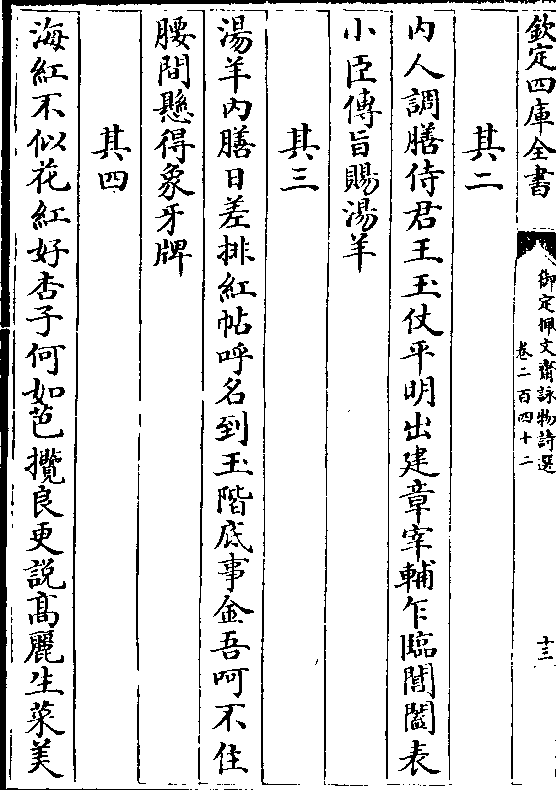 欽定四庫全書
御定佩文齋詠物詩選
卷二百四十二
十三
其二
内人調膳侍君王玉仗平明出建章宰輔乍臨閶闔表
小臣傳旨賜湯羊
其三
湯羊内膳日差排紅帖呼名到玉階底事金吾呵不住
腰間懸得象牙牌
其四
海紅不似花紅好杏子何如芭攬良更説髙麗生菜美